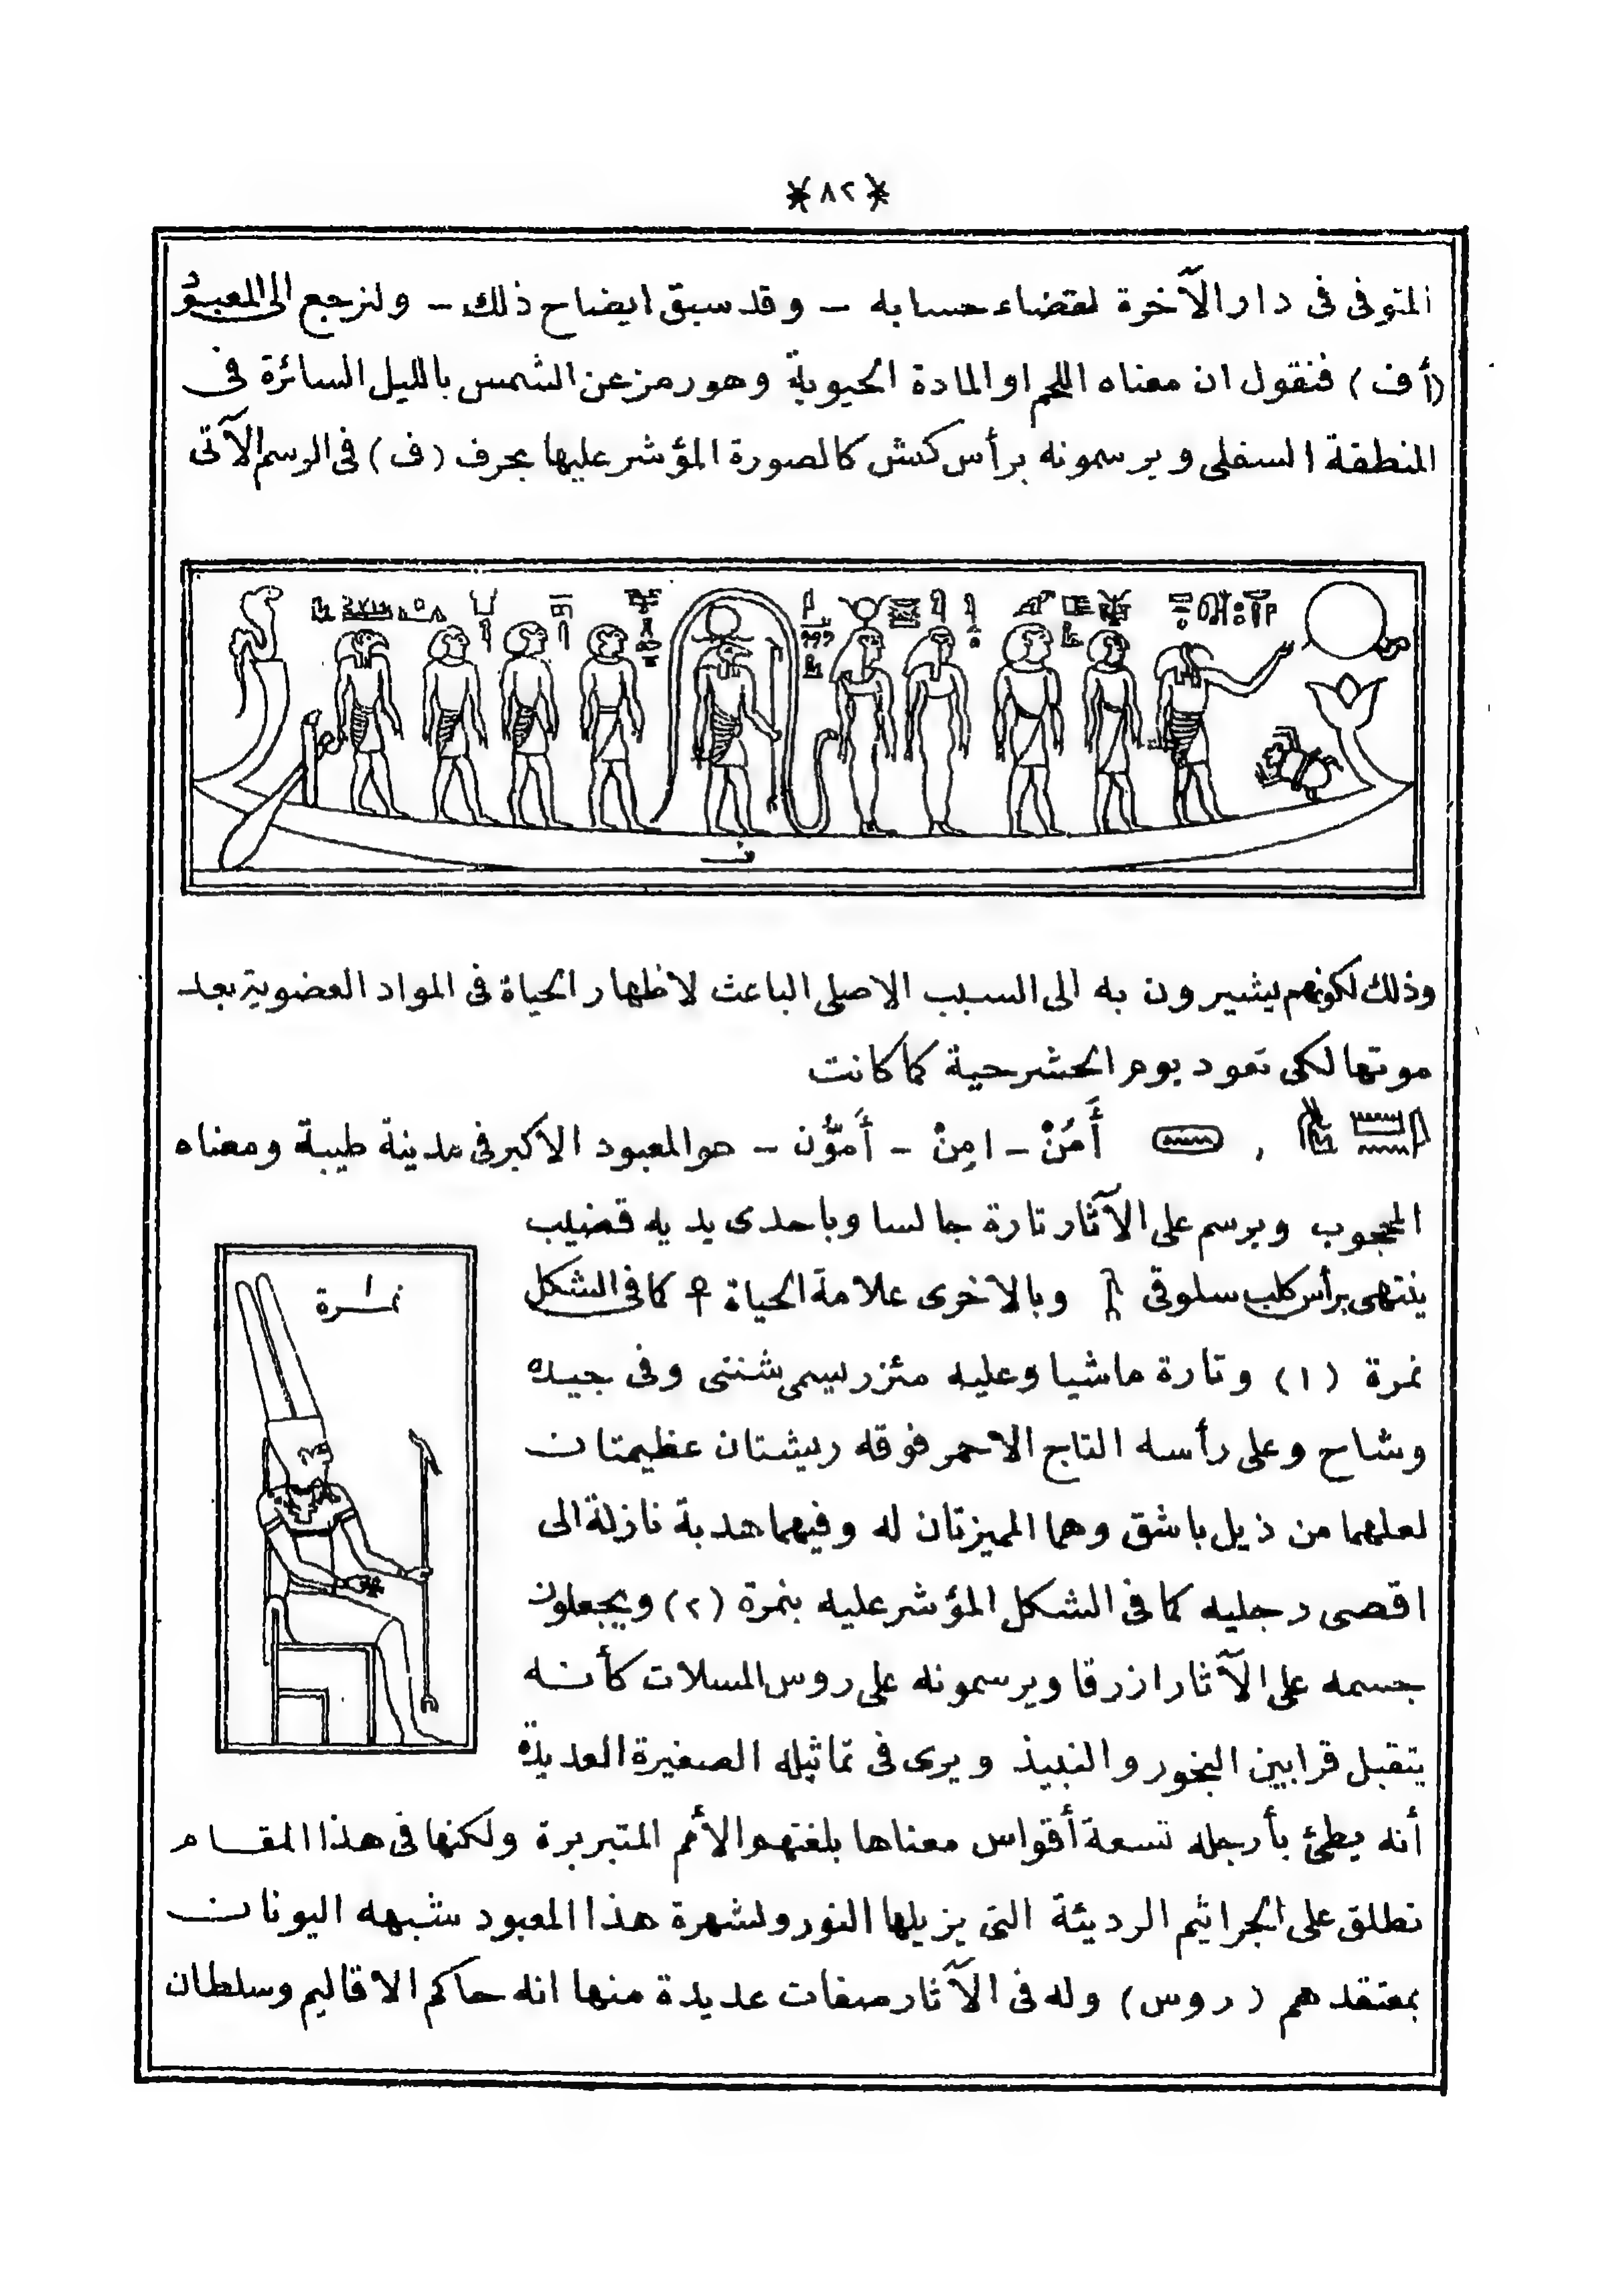 * ٨٢ *
المتوفى فى دار الآخرة لقضاء حسابه – وقد سبق ايضاح ذلك – ولنرجع الى المعبود
(أف) فنقول ان معناه اللحم او المادة الحيوية وهو رمز عن الشمس بالليل السائرة فى
المنطقة السفلى ويرسمونه برأس كبش كالصورة المؤشر عليها بحرف (ف) فى الرسم الآتى
ف
وذلك لكونهم يشيرون به الى السبب الاصلى الباعث لاظهار الحياة فى المواد العضوية بعد
موتها لكى تعود يوم الحشر حية كما كانت
أَمُنْ – امِنْ – أَمؤُن – هو المعبود الاكبر فى مدينة طيبة ومعناه
المحجوب ويرسم على الآثار تارة جالسا وباحدى يديه قضيب
ينتهى برأس كلب سلوقى وبالاخرى علامة الحياة ☥ كما فى الشكل
نمرة (١) وتارة ماشيا وعليه مئزر يسمى شنتى وفى جيده
وشاح وعلى رأسه التاج الاحمر فوقه ريشتان عظيمتان
لعلهما من ذيل باشق وهما المميزتان له وفيهما هدبة نازلة الى
اقصى رجليه كما فى الشكل المؤشر عليه بنمرة (٢) ويجعلون
جسمه على الآثار ازرقا ويرسمونه على روس المسلات كأنه
يتقبل قرابين البخور والنبيذ ويرى فى تماثيله الصغيرة العديدة
نمرة ١
أنه يطئ بأرجله تسعة أقواس معناها بلغتهم الأمم المتبربرة ولكنها فى هذا المقام
تطلق على الجراثيم الرديئة التى يزيلها النور ولشهرة هذا المعبود شبهه اليونان
بمعتقدهم (روس) وله فى الآثار صفات عديدة منها انه حاكم الاقاليم وسلطان